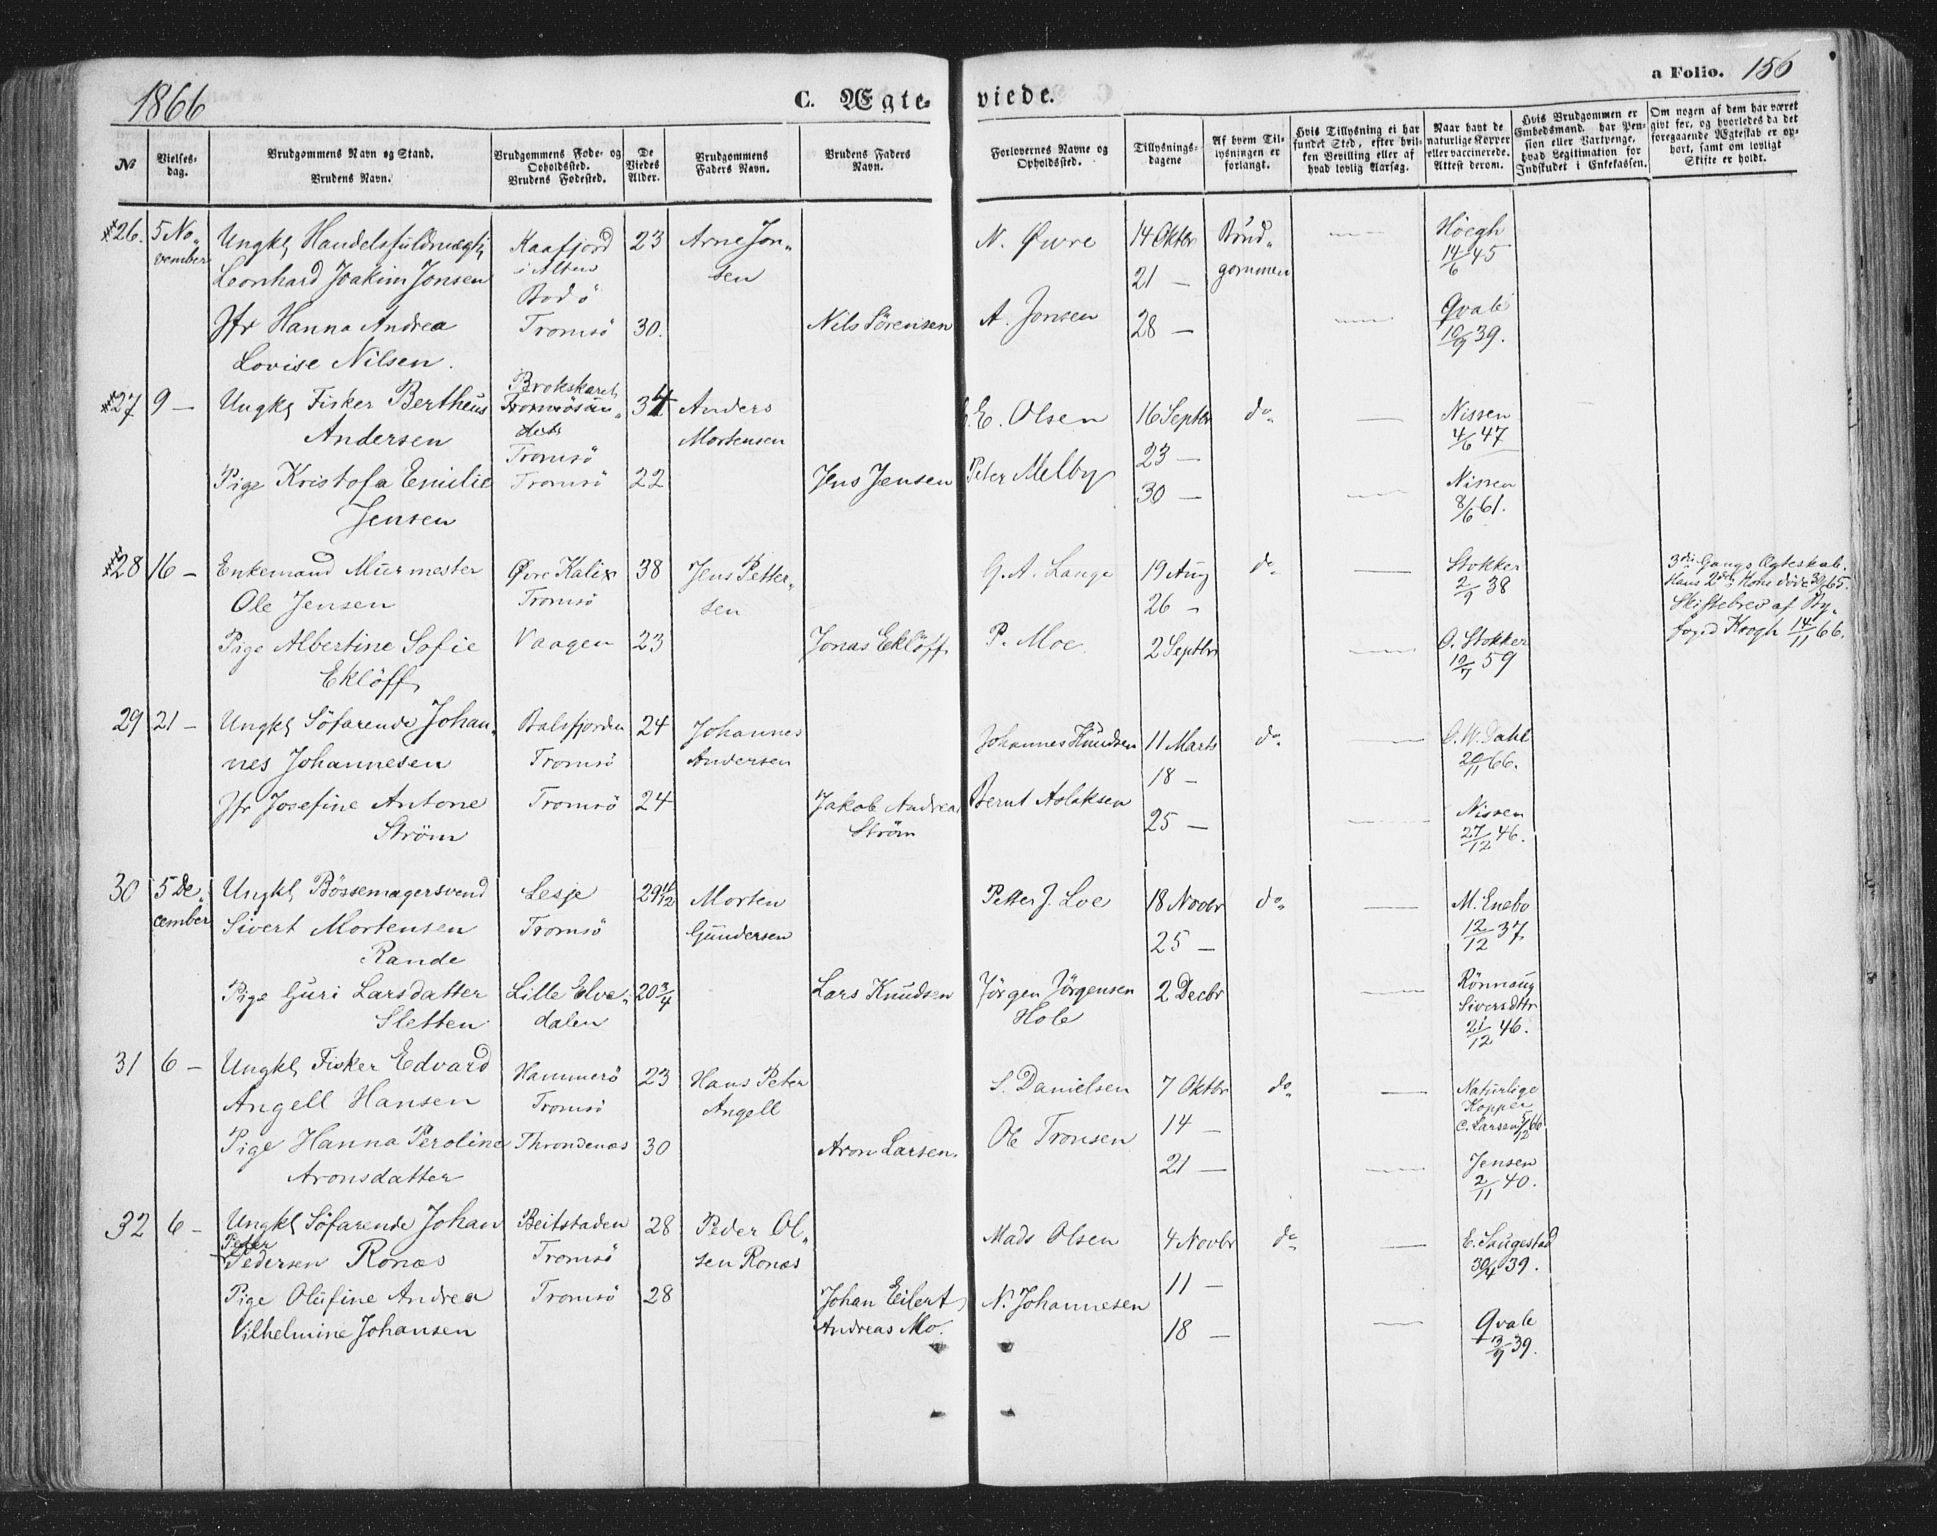 1866
C. Ægteviede.
a Folio. 156
№
Vielsesdag.
Brudgommens Navn og Stand.
Brudens Navn.
Brudgommens Føde- og Opholdssted.
Brudens Fødested.
De Viedes Alder.
Brudgommens Faders Navn.
Brudens Faders Navn.
Forlovernes Navne og Opholdssted.
Tillysningsdagene
Af hvem Tillysningen er forlangt.
Hvis Tillysning ei har fundet Sted, efter hvilken Bevilling eller af hvad lovlig Aarsag.
Naar havt de naturlige Kopper eller vaccinerede. Attest derom.
Hvis Brudgommen er Embedsmand, har Pension eller Vartpenge, hvad Legitimation for Indskudet i Enkekassen.
Om nogen af dem har været gift før, og hvorledes da det foregaaende Ægteskab er ophørt, samt om lovligt Skifte er holdt.
26. 5 November Ungkl Handelsfuldmægtig Kaafjord 23 Arne Jonsen N. Øvre 14 Oktbr Brudgommen Höegh
Leonhard Joakim Jonsen i Alten 21 — 14/6 45
Bodö
Jfr Hanna Andrea Tromsö 30. Nils Sörensen A. Jonsen 28 — Qvale
Lovise Nilsen. 10/9 39.
27 9 — Ungkl Fisker Bertheus Brokskaret 34 Anders E. Olsen 16 Septbr do Nissen
Andersen Tromsösundet Mortensen 23 — 4/6 47
Tromsö
Pige Kristofa Emilie Tromsö 22 Jens Jensen Peter Melby 30 — Nissen
Jensen 8/6 61.
28 16 — Enkemand Murmester Øvre Kalix 38 Jens Pettersen G. A. Lange 19 Aug do Stokker 3die Gangs Ægteskab.
Ole Jensen Tromsö 26 — 2/9 38 Hans 2den Kone döde 65.
Skiftebrev af By-
Pige Albertine Sofie Vaagen 23 Jonas Eklöff P. Moe 2 Septbr O. Stokker foged Krogh 14/11 66.
Eklöff 10/7 59
29 21 — Ungkl Söfarende Johan- Balsfjorden 24 Johannes Johannes Knudsen 11 Marts do C. W. Dahl
nes Johannesen Tromsö Andersen 18 — 20/11 66.
Jfr Josefine Antone Tromsö 24 Jakob Andreas Bernt Aslaksen 25 — Nissen
Ström Ström 27/12 46.
30 5 December Ungkl Bössemagersvend Lesje 29 11/12 Morten Petter J. Loe 18 Novbr do M. Enebo
Sivert Mortensen Tromsö Gundersen 25 — 12/12 37
Rande
Pige Guri Larsdatter Lille Elve- 20 3/4 Lars Knudsen Jörgen Jörgensen 2 Decbr Rönnaug
Sletten dalen Hole Siversdttr
21/12 46.
31 6 — Ungkl Fisker Edvard Hammerö 23 Hans Peter S. Danielsen 7 Oktbr do Naturlige
Angell Hansen Tromsö Angell 14 — Kopper
C. Larsen 5/12 66.
Pige Hanna Peroline Throndenæs 30 Aron Larsen. Ole Tronsen 21 — Jensen
Aronsdatter 2/11 40.
32 6 — Ungkl Söfarende Johan Beitstaden 28 Peder Ol- Mads Olsen 4 Novbr do E. Saugestad
Peter
Pedersen Ronæs Tromsö sen Ronæs 11 — 30/4 39.
Pige Olufine Andrea Tromsö 28 Johan Eilert N. Johannesen 18 — Qvale
Vilhelmine Johansen Andreas Mo. 3/9 39.